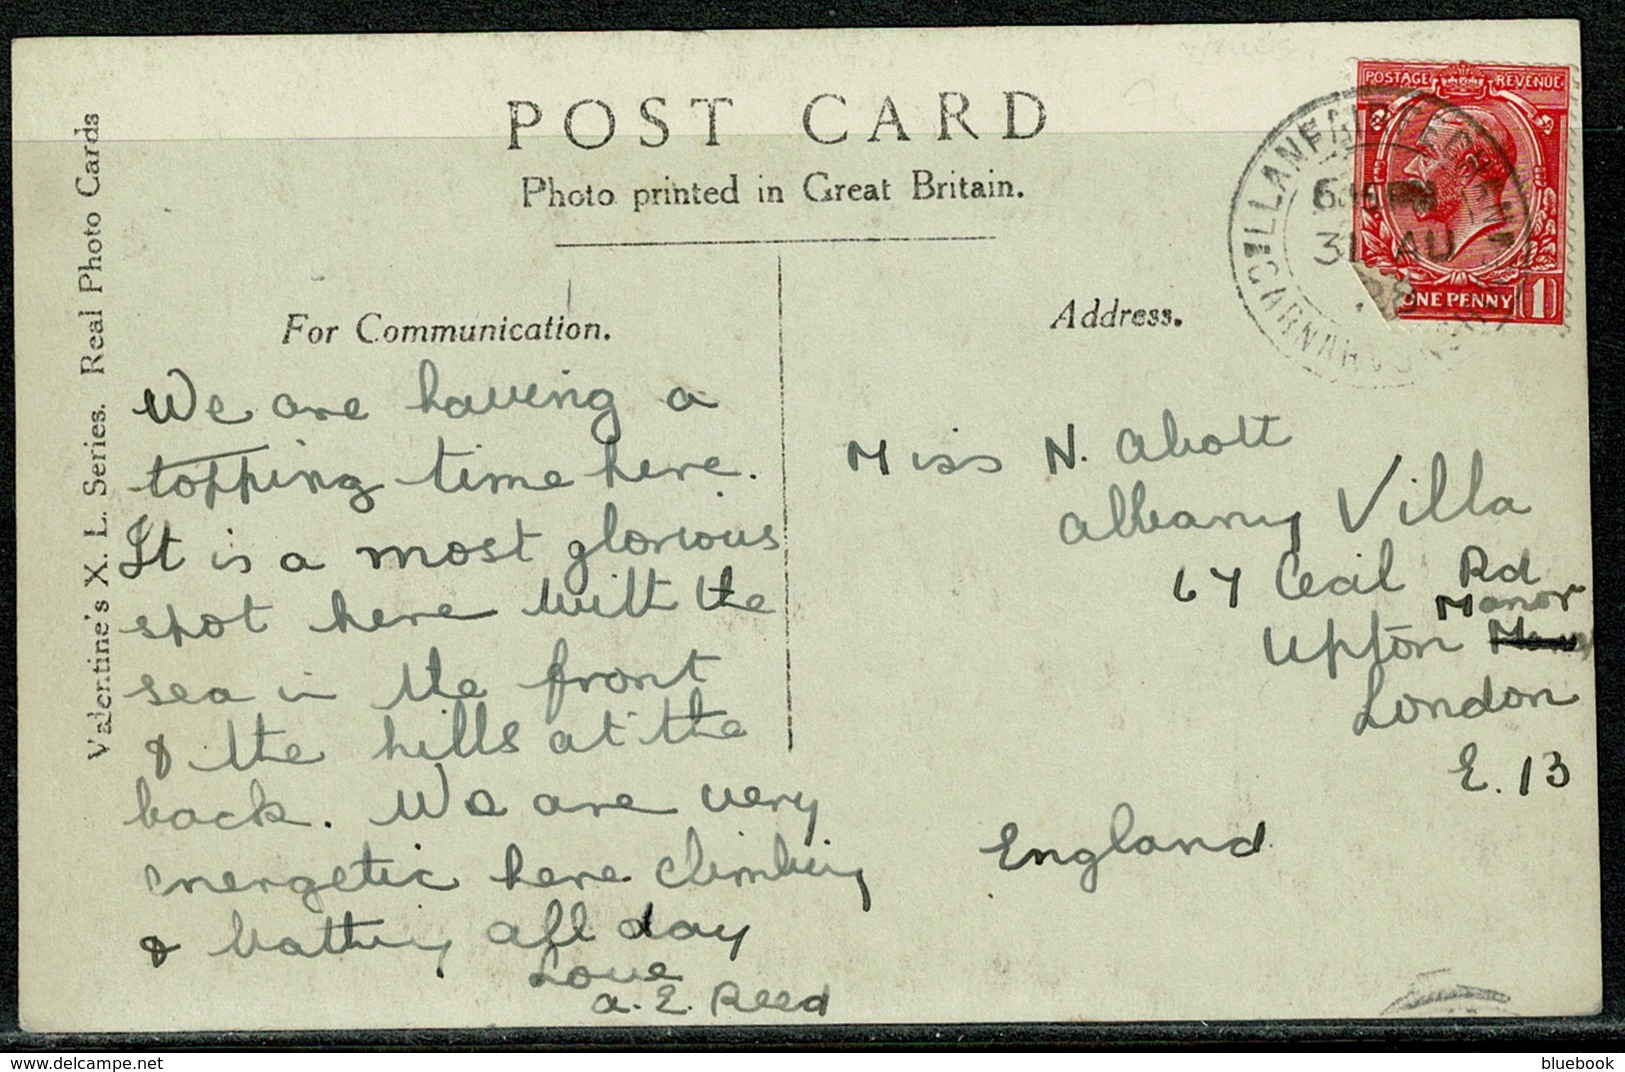 POST CARD
Photo printed in Great Britain.
Valentine's X. L. Series. Real Photo Cards
For Communication.
We are having a
topping time here.
It is a most glorious
spot here with the
sea in the front
& the hills at the
back. We are very
energetic here climbing
& bathing all day
Love
A. E. Reed
Address.
Miss N. Abott
Albany Villa
67 Cecil Rd
Manor
Upton
London
E. 13
England
POSTAGE REVENUE
ONE PENNY 1
LLANFAIRFECHAN
31 AU
28
CARNARVONSHIRE
bluebook